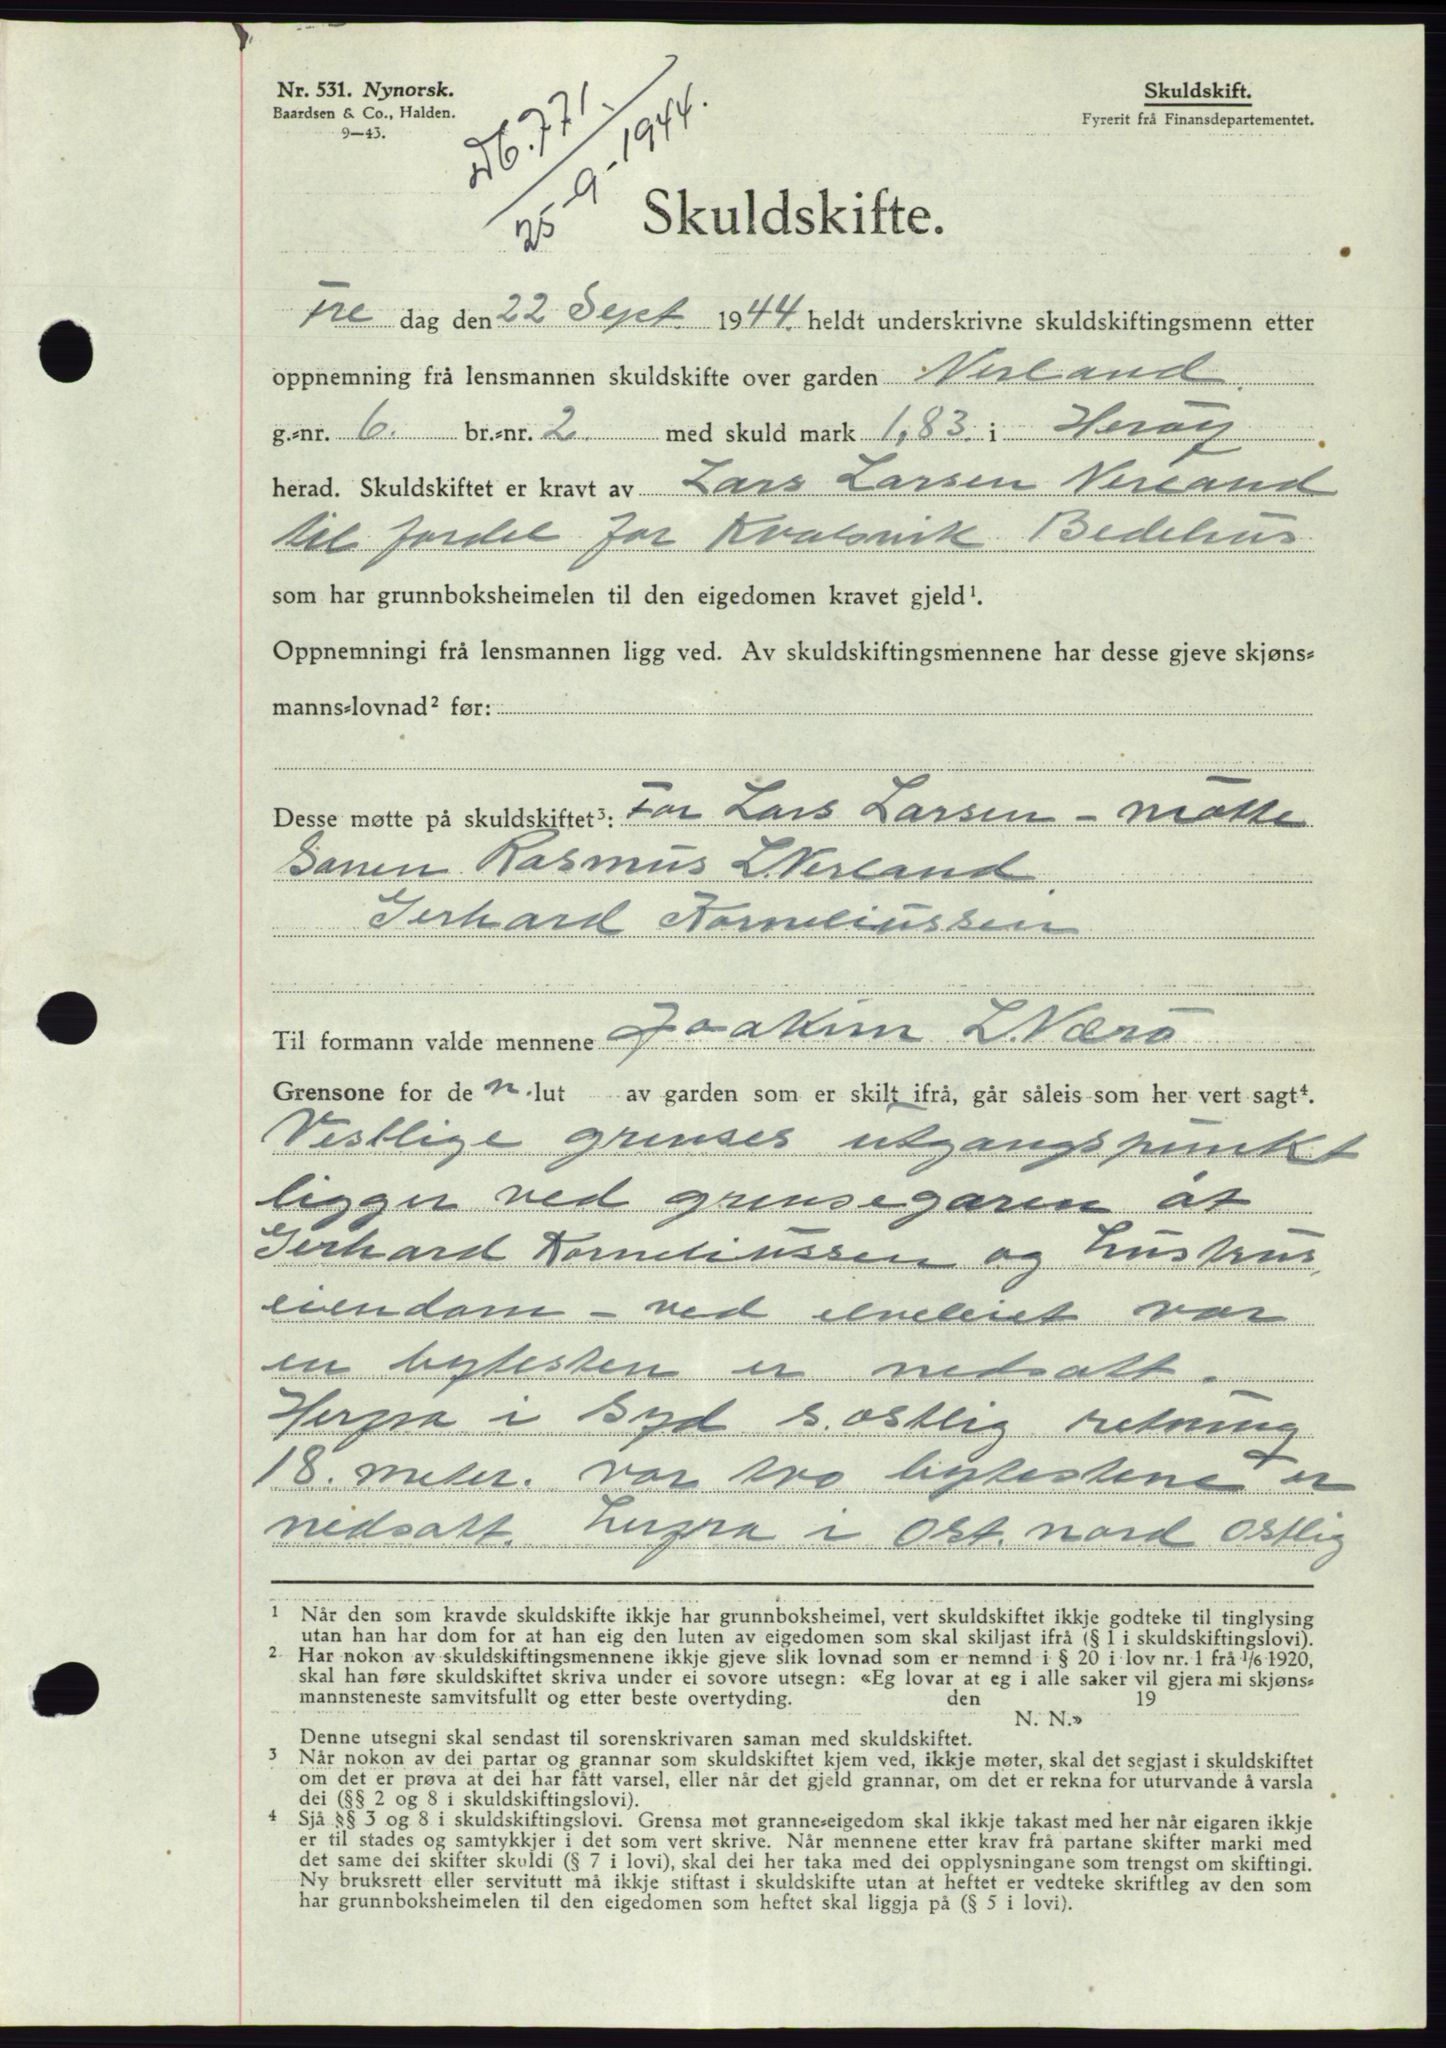 Nr. 531. Nynorsk.
Baardsen & Co., Halden.
9—43.
Skuldskift.
Fyrerit frå Finansdepartementet.
Db. 771.
25/9-1944.
Skuldskifte.
Fre dag den 22 Sept. 1944. heldt underskrivne skuldskiftingsmenn etter
oppnemning frå lensmannen skuldskifte over garden Nerland.
g.-nr. 6. br.-nr. 2. med skuld mark 1,83. i Herøy
herad. Skuldskiftet er kravt av Lars Larsen Nerland
til fordel for Kvalsvik Bedehus
som har grunnboksheimelen til den eigedomen kravet gjeld¹.
Oppnemningi frå lensmannen ligg ved. Av skuldskiftingsmennene har desse gjeve skjøns-
manns-lovnad² før:
Desse møtte på skuldskiftet³: For Lars Larsen – møtte
Sønen Rasmus L. Nerland.
Gerhard Korneliussen
Til formann valde mennene Joakim L. Nærø
Grensone for de n. lut av garden som er skilt ifrå, går såleis som her vert sagt⁴.
Vestlige grenses utgangspunkt
ligger ved grensegaren åt
Gerhard Korneliussen og hustrus,
eiendom – ved elveleiet var
en bytesten er nedsatt.
Herfra i syd s. østlig retning
18. meter. var tvo bytestene er
nedsatt. herfra i øst. nord østlig
1 Når den som kravde skuldskifte ikkje har grunnboksheimel, vert skuldskiftet ikkje godteke til tinglysing
utan han har dom for at han eig den luten av eigedomen som skal skiljast ifrå (§ 1 i skuldskiftingslovi).
2 Har nokon av skuldskiftingsmennene ikkje gjeve slik lovnad som er nemnd i § 20 i lov nr. 1 frå 1/6 1920,
skal han føre skuldskiftet skriva under ei sovore utsegn: «Eg lovar at eg i alle saker vil gjera mi skjøns-
mannsteneste samvitsfullt og etter beste overtyding. den 19
N. N.»
Denne utsegni skal sendast til sorenskrivaren saman med skuldskiftet.
3 Når nokon av dei partar og grannar som skuldskiftet kjem ved, ikkje møter, skal det segjast i skuldskiftet
om det er prøva at dei har fått varsel, eller når det gjeld grannar, om det er rekna for uturvande å varsla
dei (§§ 2 og 8 i skuldskiftingslovi).
4 Sjå §§ 3 og 8 i skuldskiftingslovi. Grensa mot granne-eigedom skal ikkje takast med her når eigaren ikkje
er til stades og samtykkjer i det som vert skrive. Når mennene etter krav frå partane skifter marki med
det same dei skifter skuldi (§ 7 i lovi), skal dei her taka med dei opplysningane som trengst om skiftingi.
Ny bruksrett eller servitutt må ikkje stiftast i skuldskifte utan at heftet er vedteke skriftleg av den som
har grunnboksheimelen til den eigedomen som heftet skal liggja på (§ 5 i lovi).